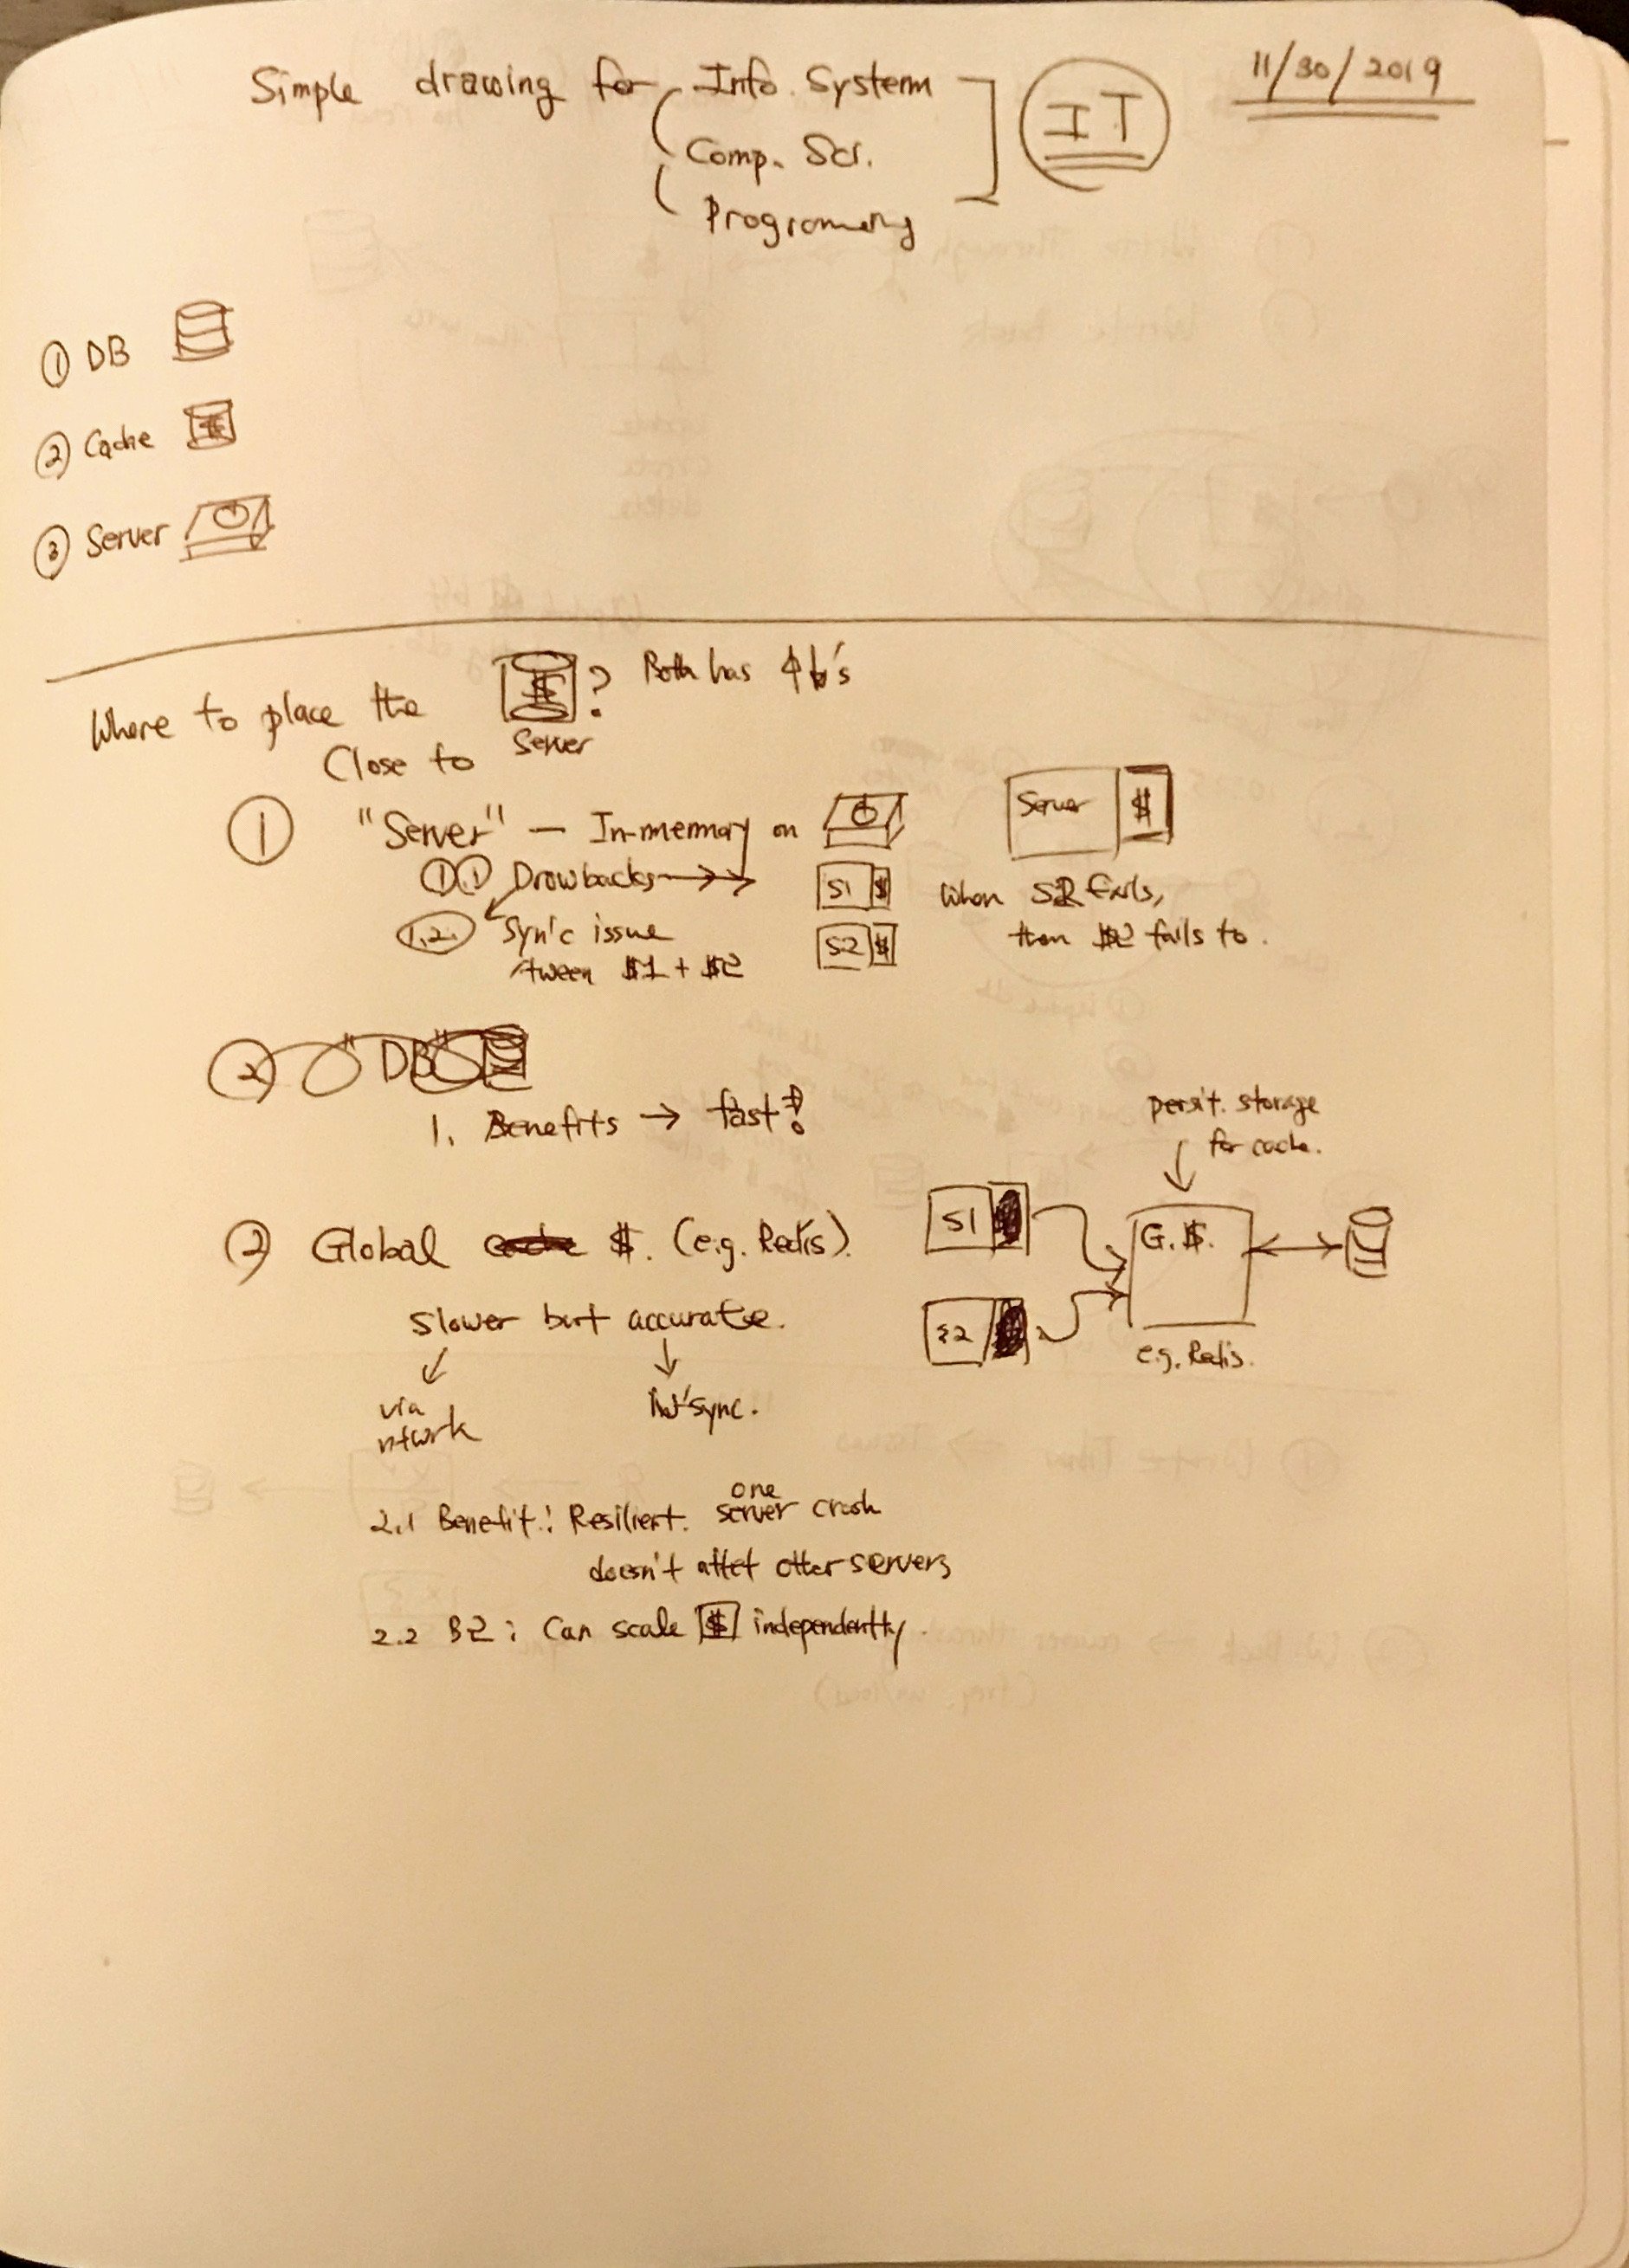 Simple drawing for Info. System
Comp. Sci.
Programming
IT
11/30/2019
① DB
② Cache $
③ Server
Where to place the $ ? Both has
Close to Server
① "Server" — In-memory on
Server $
1.1 Drawbacks →
S1 $
S2 $
When S2 fails,
then $2 fails to.
1.2. Sync issue
'tween $1 + $2
② "DB"
1. Benefits → fast!
② Global cache $. (e.g. Redis).
slower but accurate.
via
ntwork
in'sync.
persit. storage
for cache.
S1
S2
G.$.
e.g. Redis.
2.1 Benefit: Resilient. one server crash
doesn't affct other servers
2.2 B2: Can scale $ independently.